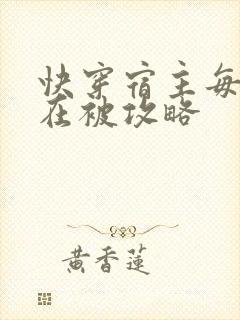 快穿宿主每
在被攻略
黄香莲